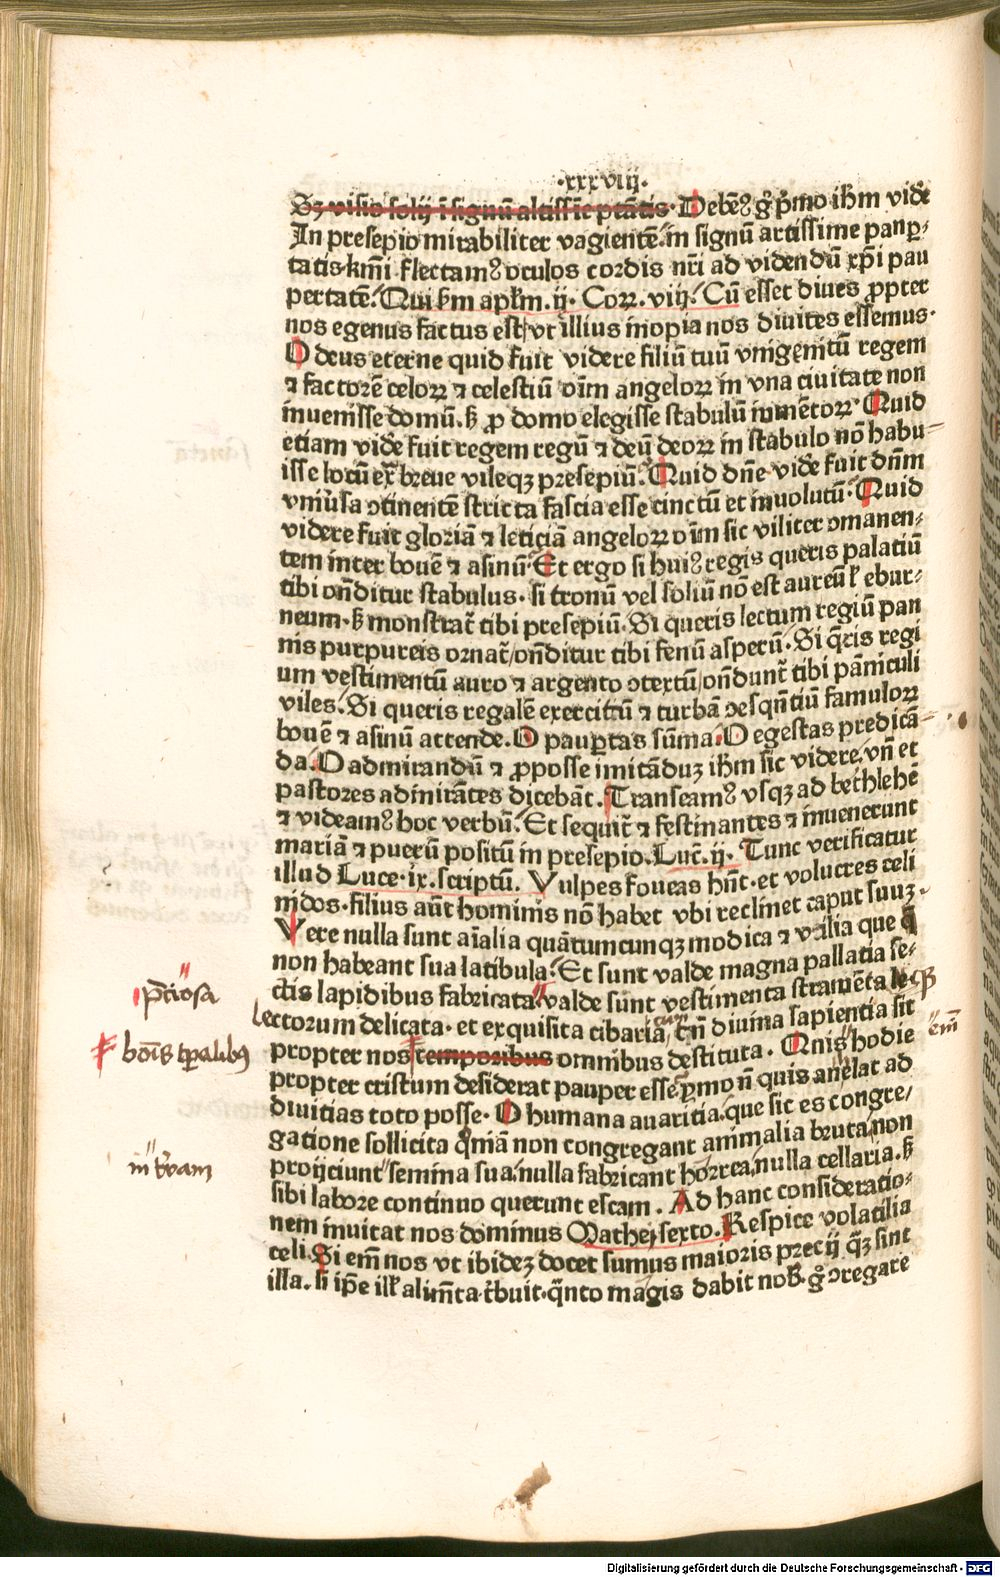 ·xxxviij·
Sʒ visio solij ī signū altissīe ptātis· Debēꝰ gͦ pͦmo ihm̄ vidē
In presepio mirabiliter vagientē. in signū artissime panꝑ⸗
tatis·km̄i flectamꝰ oculos cordis nr̄i ad videndū xp̄i pau
pertatē. Qui ẜm apłm. ij. Corꝝ. viij. Cū esset diues ꝓpter
nos egenus factus est/vt illius inopia nos diuites essemus·
O deus eterne quid fuit videre filiū tuū vnigenitū regem
⁊ factorē celoꝝ ⁊ celestiū oīm angeloꝝ in vna ciuitate non
inuenisse domū. ẜ ꝓ domo elegisse stabulū iumētoꝝ Quid
etiam vidē fuit regem regū ⁊ deū deoꝝ in stabulo nō habu⸗
isse locū ex̄ breue vileqꝫ presepiū. Quid dn̄e vidē fuit dn̄m
vniu̓sa ↄtinentē stricta fascia esse cinctū et inuolutū· Quid
videre fuit gloriā ⁊ leticiā angeloꝝ oīm sic viliter ↄmanen⸗
tem inter bouē ⁊ asinū· Et ergo si huiꝰ regis queris palatiū
tibi on̄ditur stabulus· si tronū vel soliū nō est aureū ł ebur⸗
neum· ẜ monstrat̄ tibi presepiū· Si queris lectum regiū pan
nis purpureis ornat̄/on̄ditur tibi fenū asperū· Si q̄ris regi
um vestimentū auro ⁊ argento ↄtextū/on̄dunt̄ tibi pāniculi
viles. Si queris regalē exercitū ⁊ turbā ↄesqn̄tiū famuloꝝ
bouē ⁊ asinū attende. O pauꝑtas sūma. O egestas predicā⸗
da. O admirandū ⁊ ꝓposse imitāduꝫ ihm̄ sic videre, vn̄ et
pastores adinitātes dicebāt. Transeamꝰ vsqꝫ ad bethlehē
⁊ videamꝰ hoc verbū. Et sequit̄ ⁊ festinantes ⁊ inuenerunt
mariā ⁊ puerū positū in presepio. Luc̄. ij. Tunc verificatur
illud Luce· ix. scriptū. Vulpes foueas hn̄t· et volucres celi
nidos· filius aūt hominis nō habet vbi reclinet caput suuꝫ·
Vere nulla sunt aīalia quātumcunqꝫ modica ⁊ vilia que q̄
non habeant sua latibula. Et sunt valde magna pallatia se⸗
ctis lapidibus fabricata valde sunt vestimenta stramēta le
p̄tiosa
Lectorum delicata· et exquisita cibaria, tn̄ diuina sapientia sit
bōis tꝑalibꝫ
propter nos temporibus omnibus destituta. Quis hodie
em̄
propter cristum desiderat pauper esse pͦmo n̄ quis anelat ad
diuitias toto posse· O humana auaritia. que sic es congre/
gatione sollicita qͦmā non congregant animalia bruta, non
in tr̄ram
proijciunt semina sua, nulla fabricant horrea, nulla cellaria. ẜ
sibi labore continuo querunt escam. Ad hanc consideratio⸗
nem inuitat nos dominus Mathei sexto. Respice volatilia
celi. Si em̄ nos vt ibideꝫ docet sumus maioris precij qꝫ̄ sint
illa. si ip̄e ill̄ alim̄ta tͥbuit· qn̄to magis dabit nob̄. gͦ ↄregate
Digitalisierung gefördert durch die Deutsche Forschungsgemeinschaft - DFG